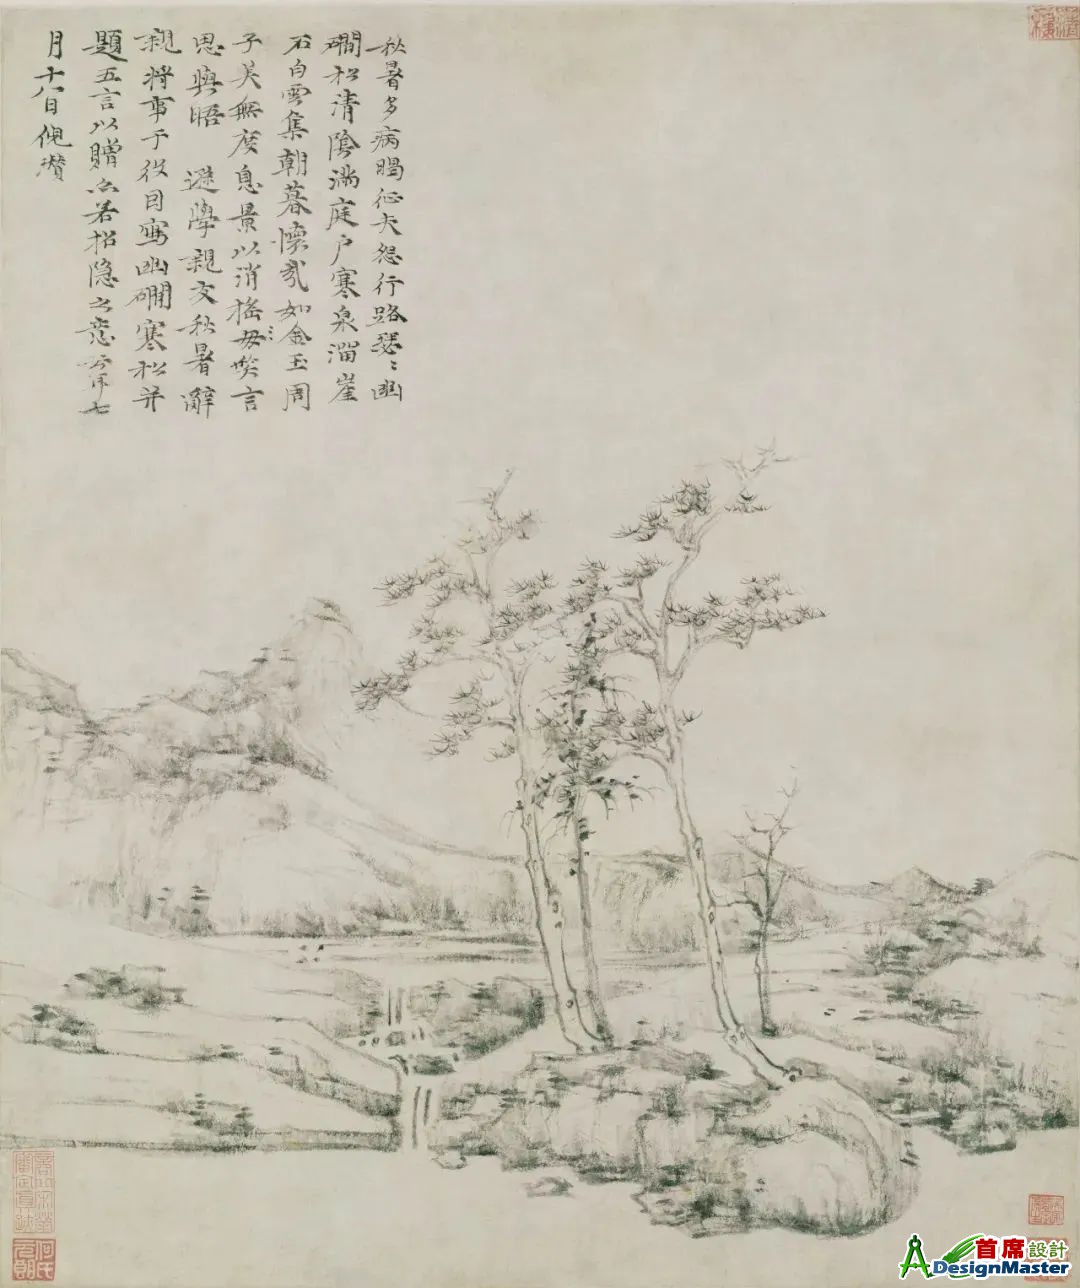 秋暑多病暍征夫怨行路瑟〻幽
磵松清陰滿庭戶寒泉溜崖
石白雲集朝暮懷哉如金玉周
子美無度息景以消搖毋笑言
思與晤 遜學親友秋暑辭
親將事于役因寫幽磵寒松并
題五言以贈亦若招隱之意云耳七
月十八日倪瓚
何氏元朗
首席設計
ADesignMaster